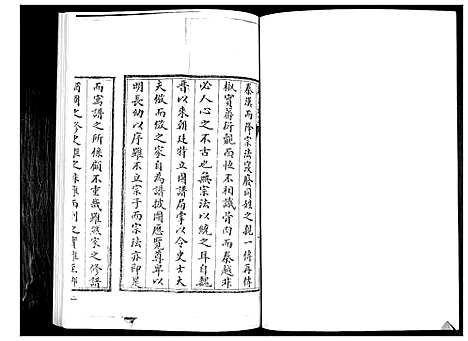 秦漢而降宗法寖廢同姓之親一傳再傳
椒實蕃衍覿面恆不相識骨肉而秦越非
必人心之不古也無宗法以統之耳自魏
晉以來朝廷特立圖譜局掌以令史士大
夫倣而倣之家自為譜披圖應覽尊卑以
明長幼以序雖不立宗子而宗法亦即是
而寓譜之所係顧不重哉雖然家之修譜
猶國之修史史之
二